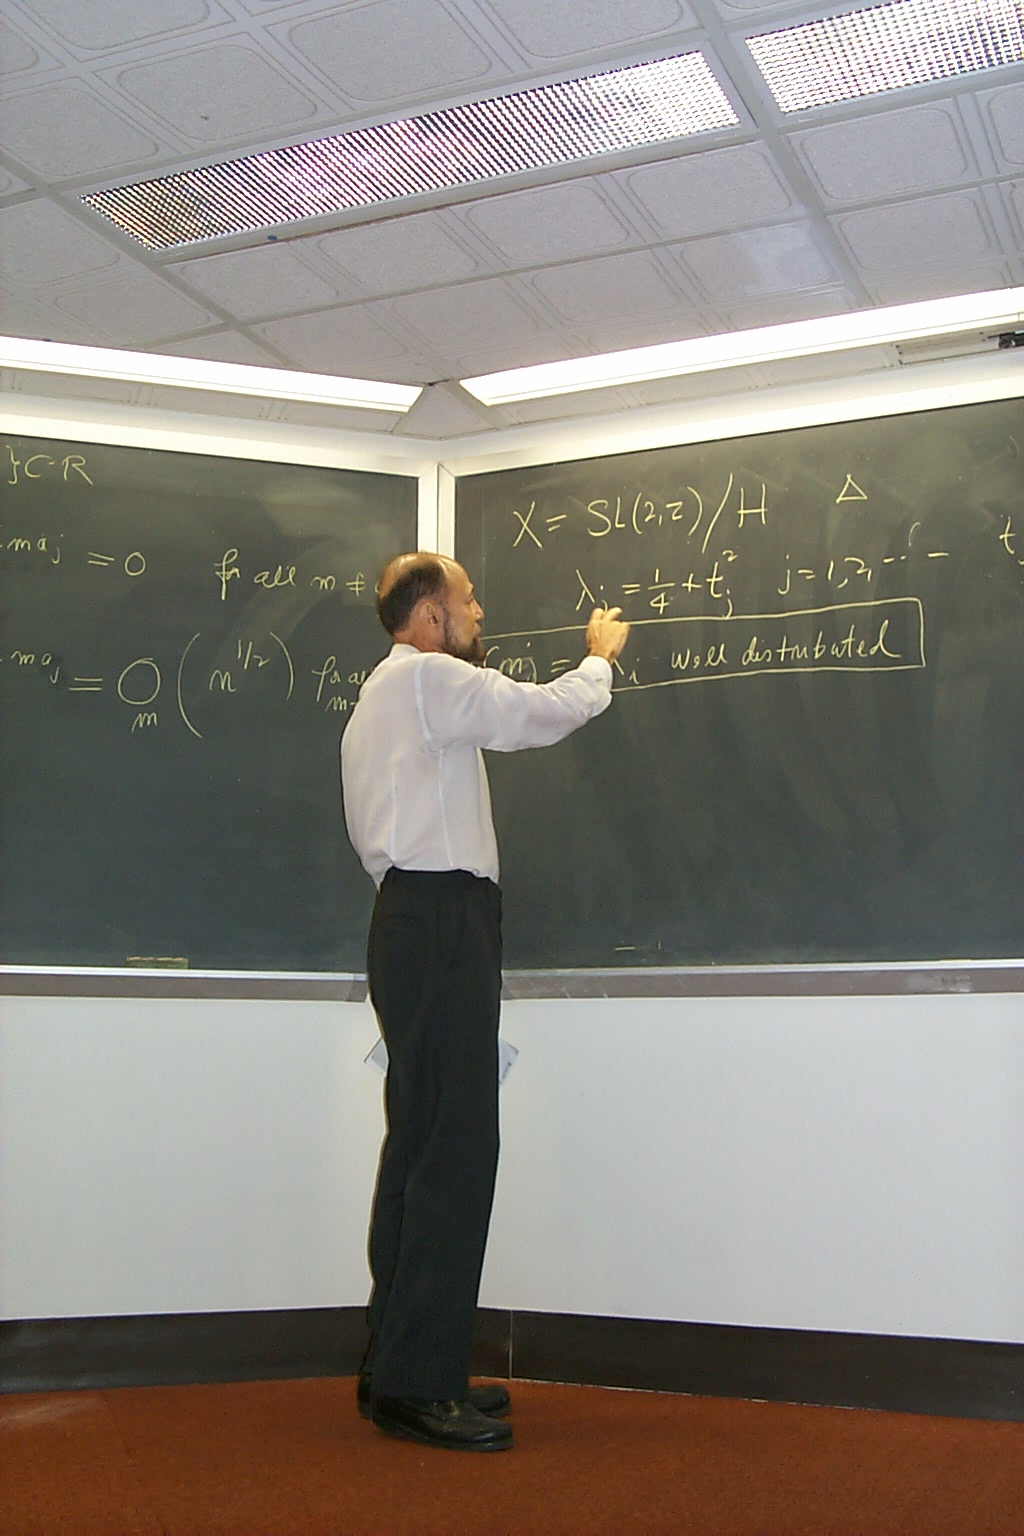 }C-R
maj = 0 for all m ≠
maj = O_m (n^{1/2})
X = SL(2,Z)/H Δ
λj = 1/4 + tj^2 j=1,2,...
well distributed